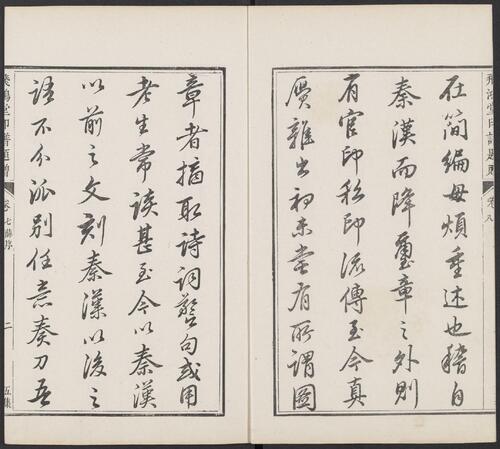 在簡編毋煩重述也稽自
秦漢而降璽章之外則
有官印私印流傳至今真
贋雜出初未嘗有所謂圖
章者摘取詩詞警句或用
老生常談甚至今以秦漢
以前之文刻秦漢以後之
語不分派別任意奏刀吾
飛鴻堂印譜
二
五集